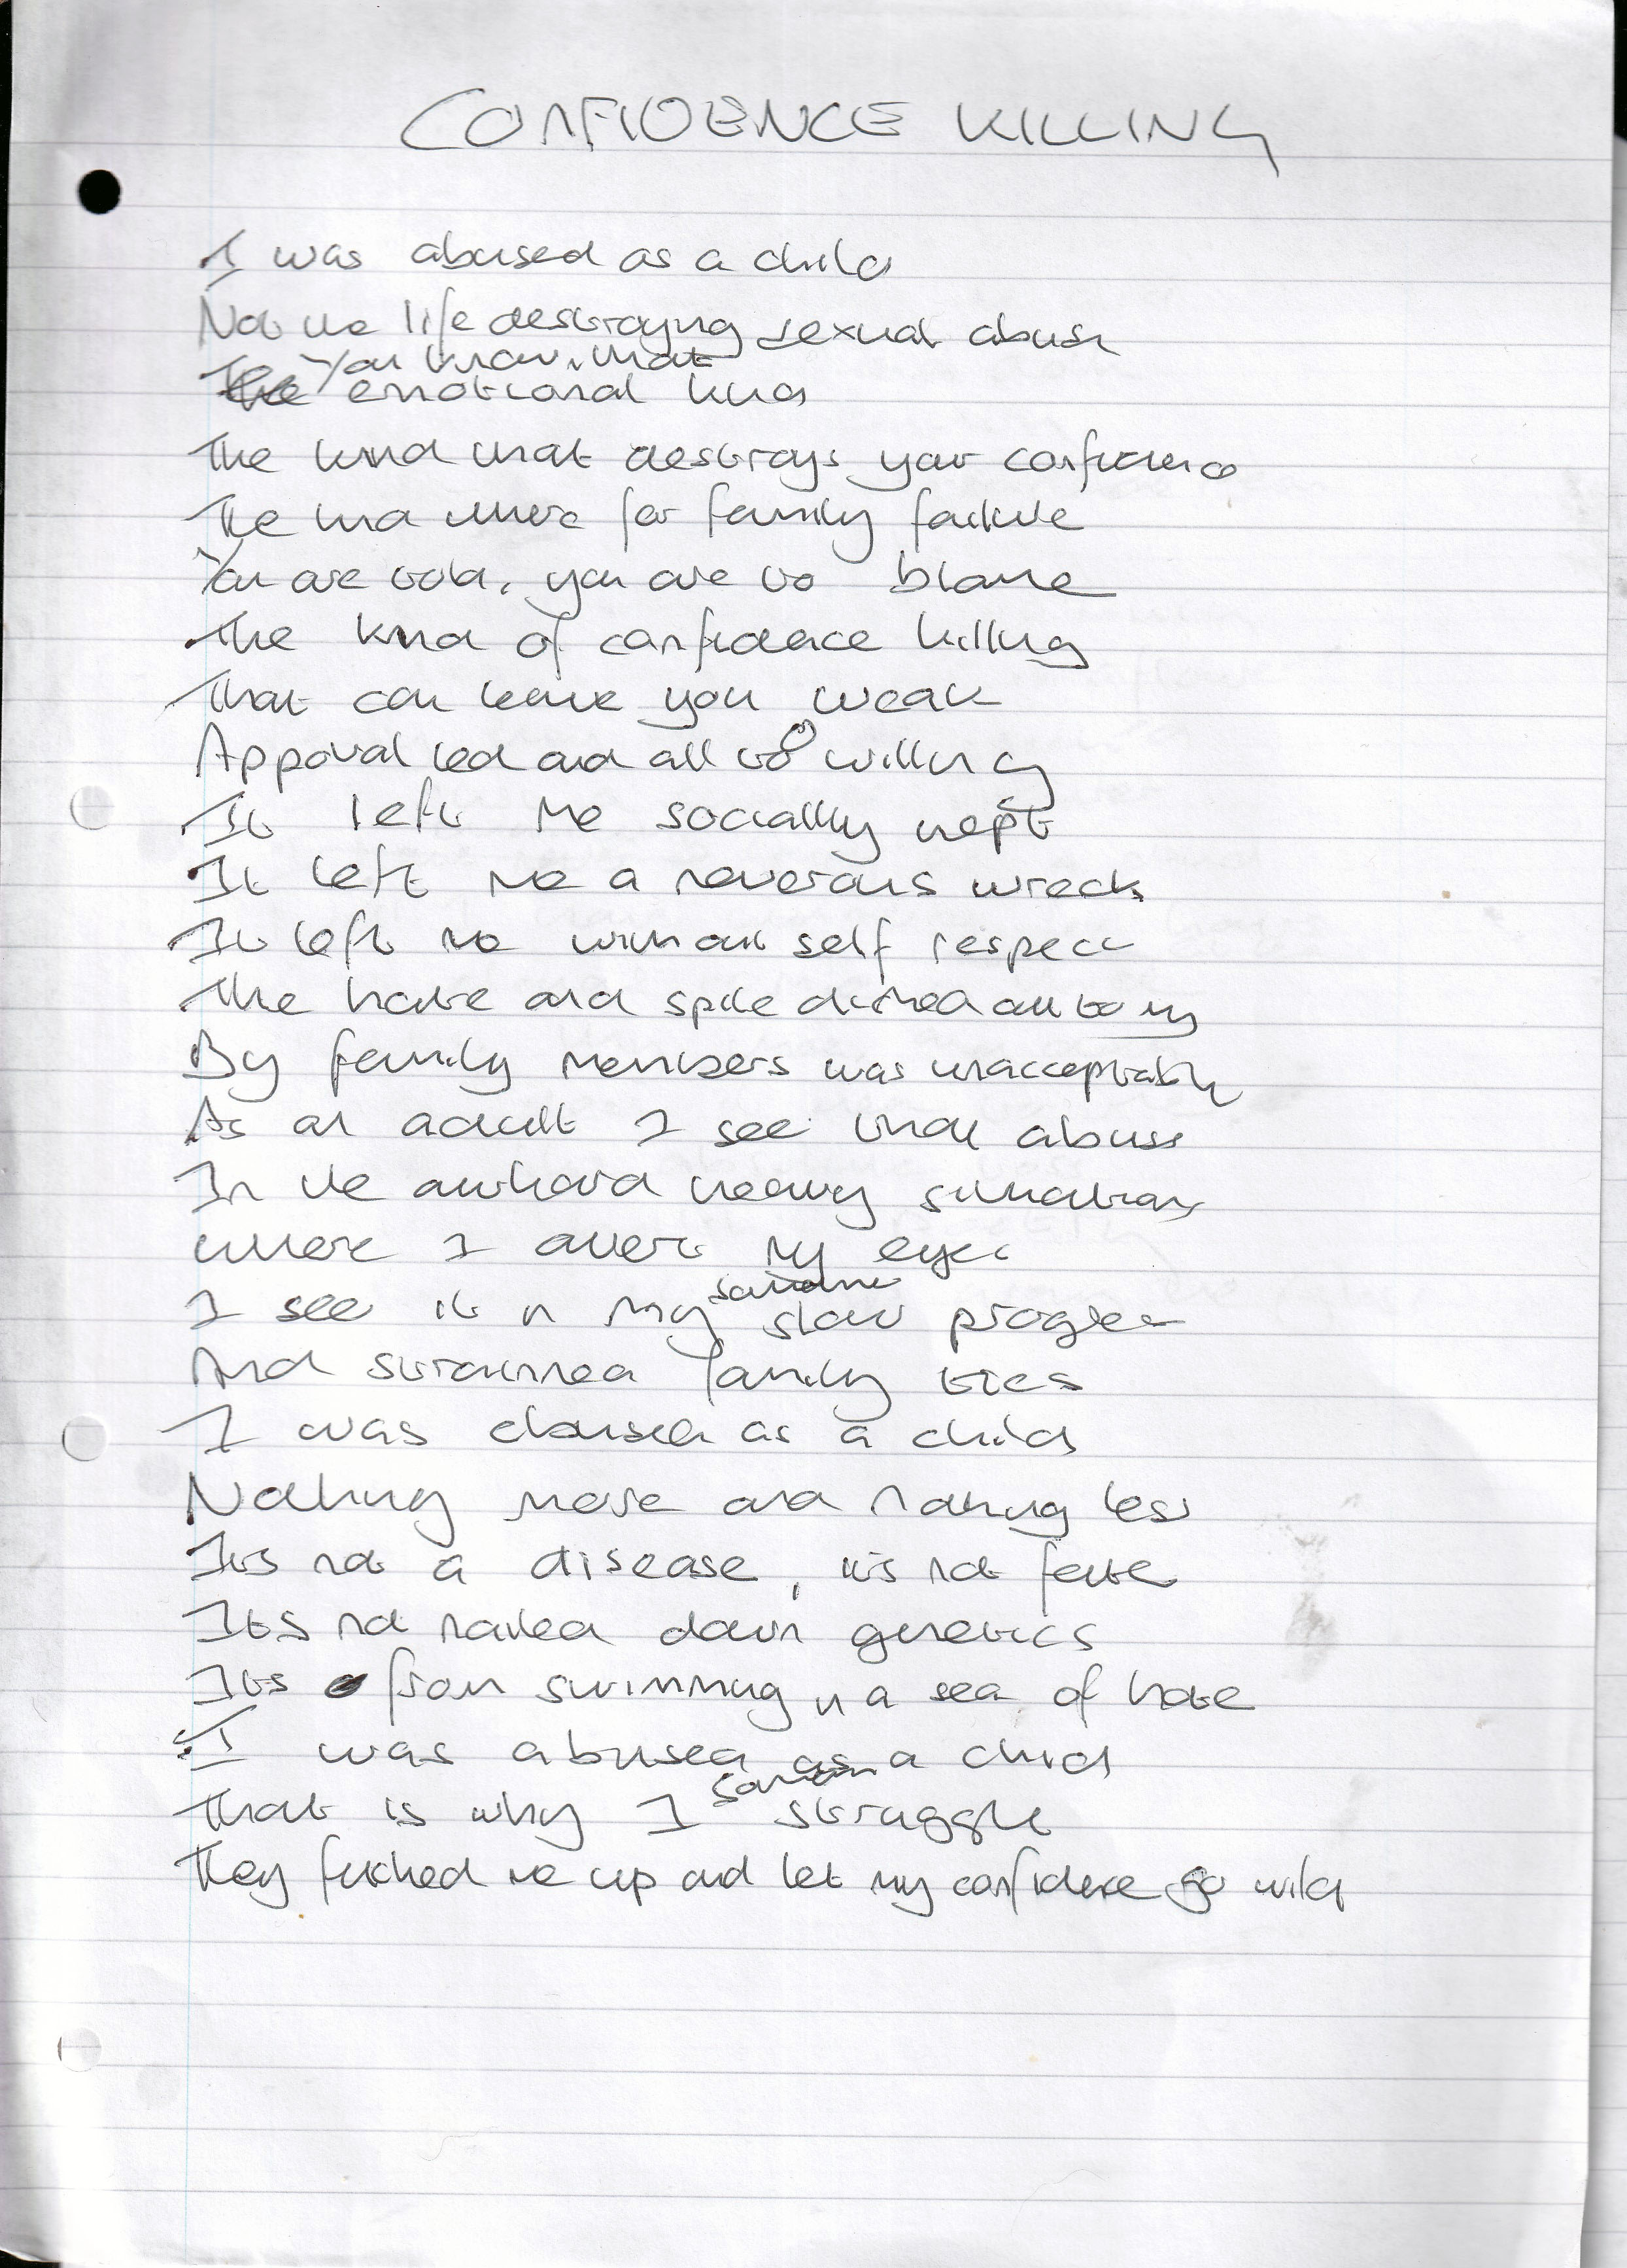 CONFIDENCE KILLING
I was abused as a child
Not the life destroying sexual abuse
The You know, that
emotional kind
The kind that destroys your confidence
The kind where for family failure
You are told, you are to blame
The kind of confidence killing
That can leave you weak
Approval led and all too willing
It left me socially inept
It left me a neverous wreck
It left me without self respect
The hate and spite dished out to my
By family members was unacceptable
As an adult I see that abuse
In the awkward meeting situations
where I avert my eyes
I see it in my slow progress
And strainned family ties
I was abused as a child
Nothing more and nothing less
Its not a disease, it's not fate
Its not nailed down genetics
Its from swimming in a sea of hate
I was abused as a child
That is why I struggle
They fucked me up and let my confidence go wild